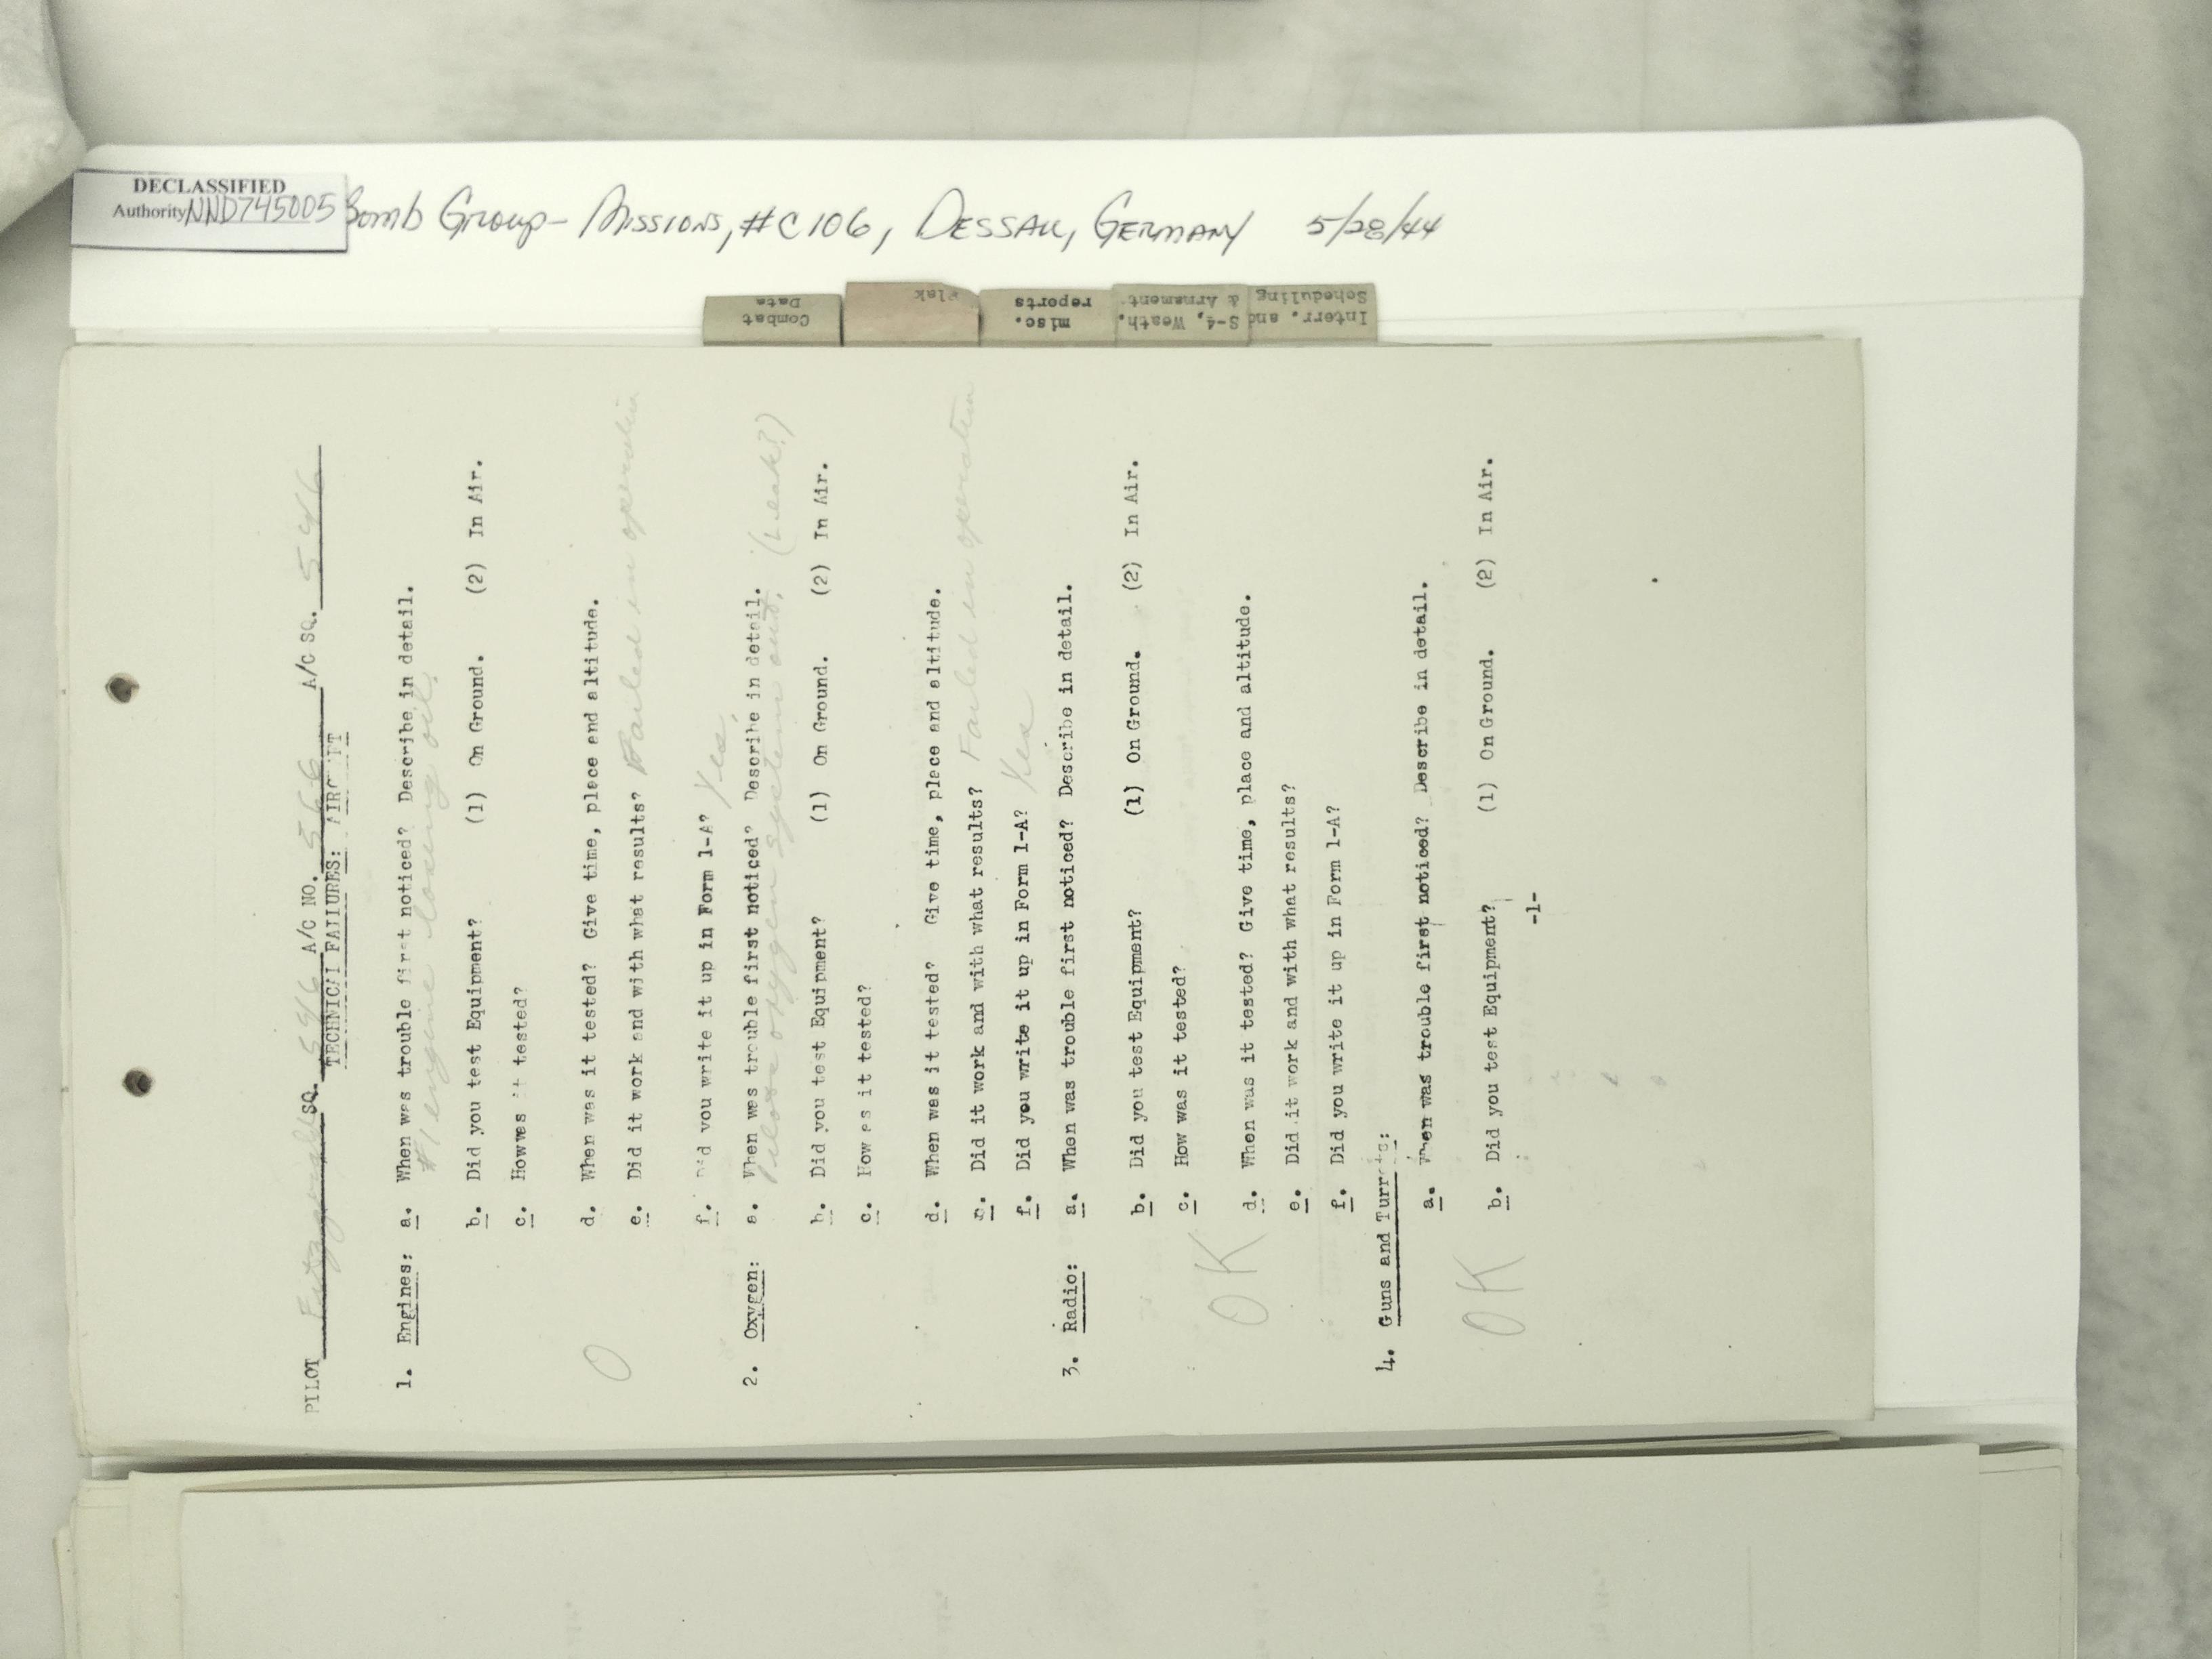 DECLASSIFIED
Authority NND745005
Bomb Group - Missions, #C106, Dessau, Germany 5/28/44
Combat Data
Flak
misc. reports
S-4, Weath. & Armament
Interr. and Scheduling
PILOT SQ. 546 A/C NO. 566 A/C SQ. 546
TECHNICAL FAILURES: AIRCRAFT
1. Engines: a. When was trouble first noticed? Describe in detail.
#1 engine losing oil.
b. Did you test Equipment? (1) On Ground. (2) In Air.
c. How was it tested?
d. When was it tested? Give time, place and altitude.
e. Did it work and with what results? Failed in operation
f. Did you write it up in Form 1-A? Yes
O
2. Oxygen: a. When was trouble first noticed? Describe in detail.
oxygen system out. (Leak?)
b. Did you test Equipment? (1) On Ground. (2) In Air.
c. How as it tested?
d. When was it tested? Give time, place and altitude.
e. Did it work and with what results? Failed in operation
f. Did you write it up in Form 1-A? Yes
3. Radio: a. When was trouble first noticed? Describe in detail.
b. Did you test Equipment? (1) On Ground. (2) In Air.
c. How was it tested?
OK
d. When was it tested? Give time, place and altitude.
e. Did it work and with what results?
f. Did you write it up in Form 1-A?
4. Guns and Turrets:
a. When was trouble first noticed? Describe in detail.
OK
b. Did you test Equipment? (1) On Ground. (2) In Air.
-1-